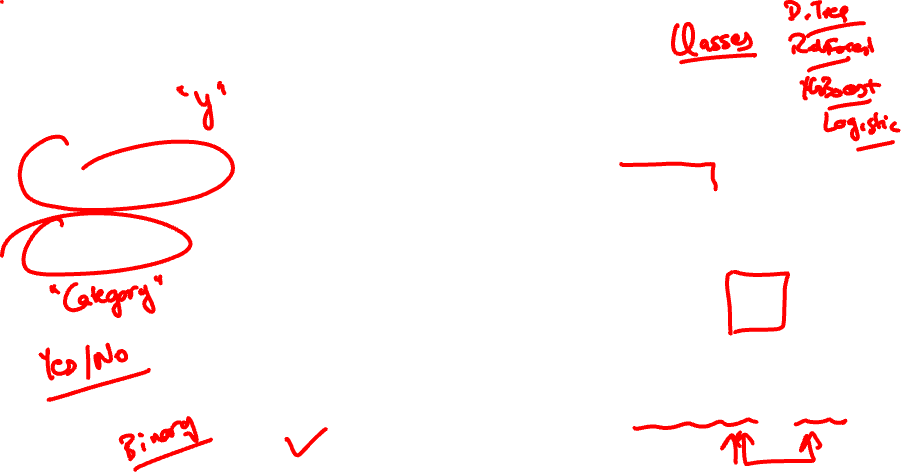 "y"
"Category"
Yes/No
Binary
Classes
D.Tree
XGBoost
Logistic